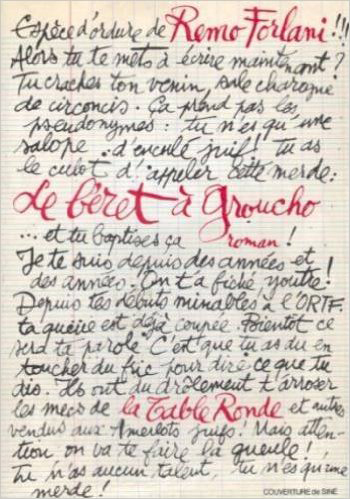 Espèce d'ordure de Remo Forlani !!!
Alors tu te mets à écrire maintenant ?
Tu craches ton venin, sale charogne
de circoncis. Ça prend pas les
pseudonymes : tu n'es qu'une
salope d'enculé juif ! tu as
le culot d'appeler cette merde :
Le béret à Groucho
... et tu baptises ça roman !
Je te suis depuis des années et
des années. On t'a fiché, youtre !
Depuis tes débuts minables à l'ORTF.
ta queue est déjà coupée. Bientôt ce
sera ta parole. C'est que tu as du en
toucher du fric pour dire ce que tu
dis. Ils ont du drôlement t'arroser
les mecs de la Table Ronde et autres
vendus aux Amerlots juifs ! Mais atten-
tion on va te faire la gueule !
Tu n'as aucun talent, tu n'es qu'une
merde !
COUVERTURE de SINÉ